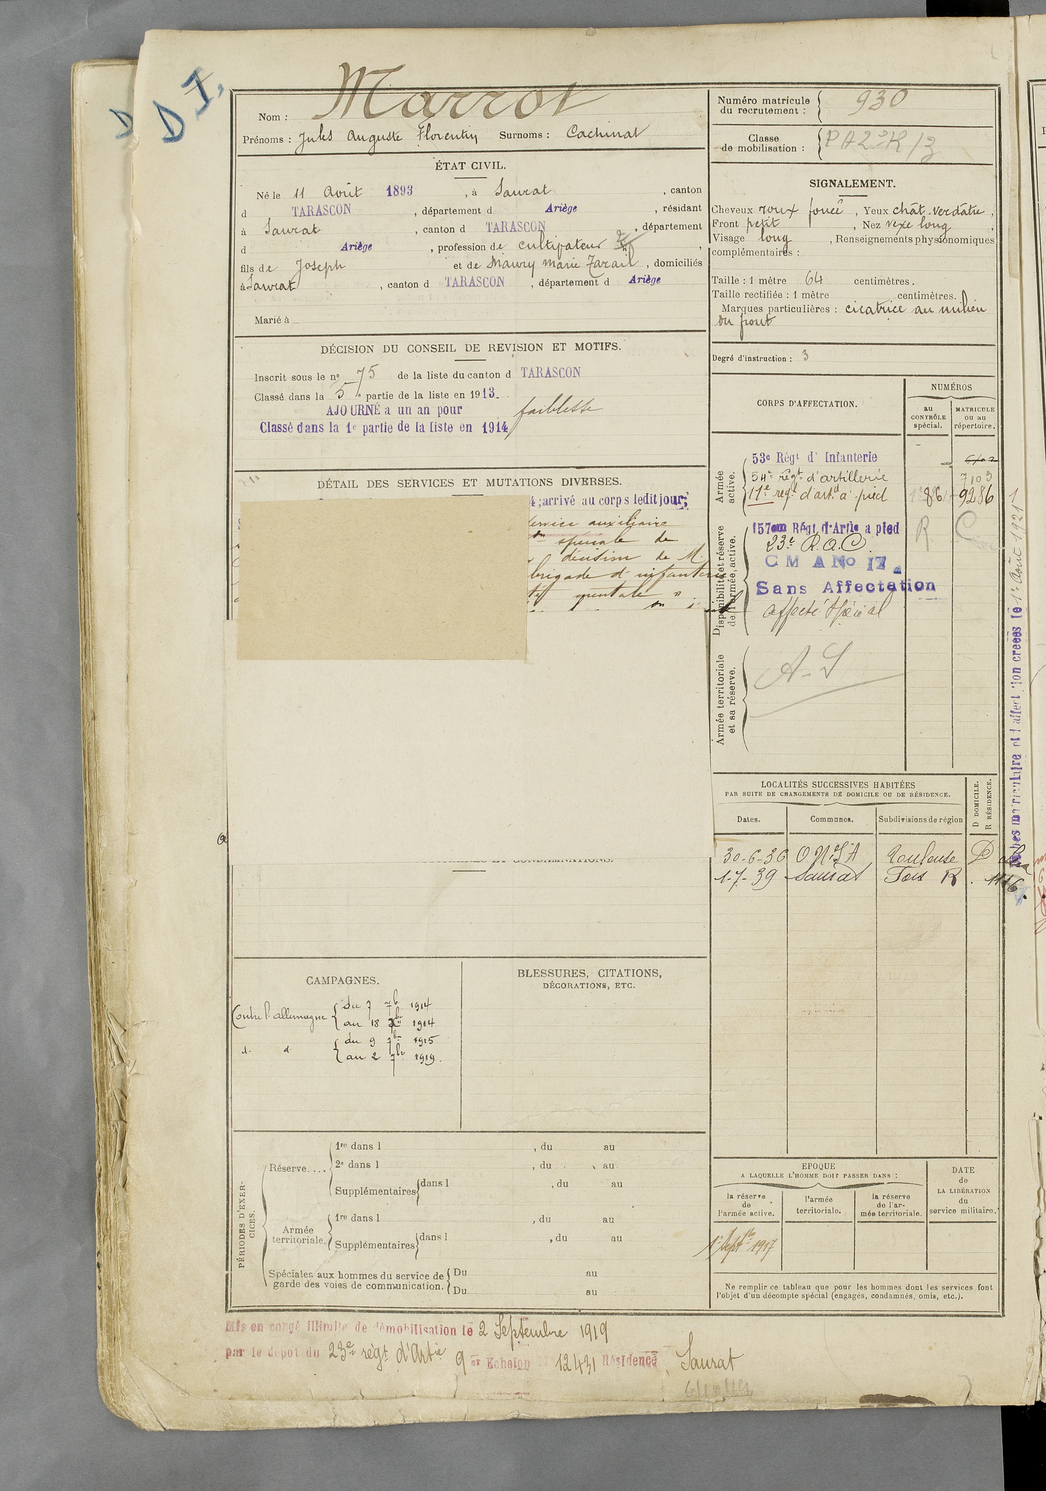 D I.
D
Nom : Marrot
Prénoms : Jules Auguste Florentin Surnoms : Cachinat
ÉTAT CIVIL.
Né le 11 Août 1893, à Saurat, canton
d TARASCON, département d Ariège, résidant
à Saurat, canton d TARASCON, département
d Ariège, profession de cultivateur
fils de Joseph et de Maury Marie, domiciliés
à Saurat, canton d TARASCON, département d Ariège
Marié à
DÉCISION DU CONSEIL DE REVISION ET MOTIFS.
Inscrit sous le no 75 de la liste du canton d TARASCON
Classé dans la 5e partie de la liste en 1913.
AJOURNÉ a un an pour faiblesse
Classé dans la 1e partie de la liste en 1914
DÉTAIL DES SERVICES ET MUTATIONS DIVERSES.
4 ;arrivé au corps ledit jour;
service auxiliaire
spéciale de
décision de M.
brigade d'infanterie
CAMPAGNES.
Contre l'allemagne { du 7 7b 1914
au 18 1914
d° d° { du 9 1915
au 2 7bre 1919.
BLESSURES, CITATIONS,
DÉCORATIONS, ETC.
PÉRIODES D'EXERCICES.
Réserve.... 1re dans l , du au
2e dans l , du au
Supplémentaires { dans l , du au
Armée territoriale. 1re dans l , du au
Supplémentaires { dans l , du au
Spéciales aux hommes du service de garde des voies de communication. { Du au
Du au
Mis en congé illimité de démobilisation le 2 Septembre 1919
par le dépôt du 23e régt d'Artie 9 er Echelon 12431 Résidence Saurat
Numéro matricule du recrutement : 930
Classe de mobilisation :
SIGNALEMENT.
Cheveux roux foncé, Yeux chât. verdâtre,
Front petit, Nez vexe long,
Visage long, Renseignements physionomiques
complémentaires :
Taille : 1 mètre 64 centimètres.
Taille rectifiée : 1 mètre centimètres.
Marques particulières : cicatrice au milieu
du front
Degré d'instruction : 3
CORPS D'AFFECTATION.
NUMÉROS
AU CONTRÔLE spécial.
MATRICULE OU AU répertoire.
Armée active.
53e Régt d'Infanterie
54e régt d'artillerie 7103
11e régt d'art. à pied 9286
Disponibilité et réserve de l'armée active.
157em Régt d'Artie a pied
23e R.A.C.
C M A No 17
Sans Affectation
affecté spécial
R C
Armée territoriale et sa réserve.
A-S
LOCALITÉS SUCCESSIVES HABITÉES
PAR SUITE DE CHANGEMENTS DE DOMICILE OU DE RÉSIDENCE.
Dates. Communes. Subdivisions de région D DOMICILE. R RÉSIDENCE.
30-6-36 Toulouse D
1-7-39 Saurat Foix R
EPOQUE
A LAQUELLE L'HOMME DOIT PASSER DANS :
la réserve de l'armée active.
l'armée territoriale.
la réserve de l'armée territoriale.
DATE de LA LIBÉRATION du service militaire.
1er Septbre 1917
Ne remplir ce tableau que pour les hommes dont les services font
l'objet d'un décompte spécial (engagés, condamnés, omis, etc.).